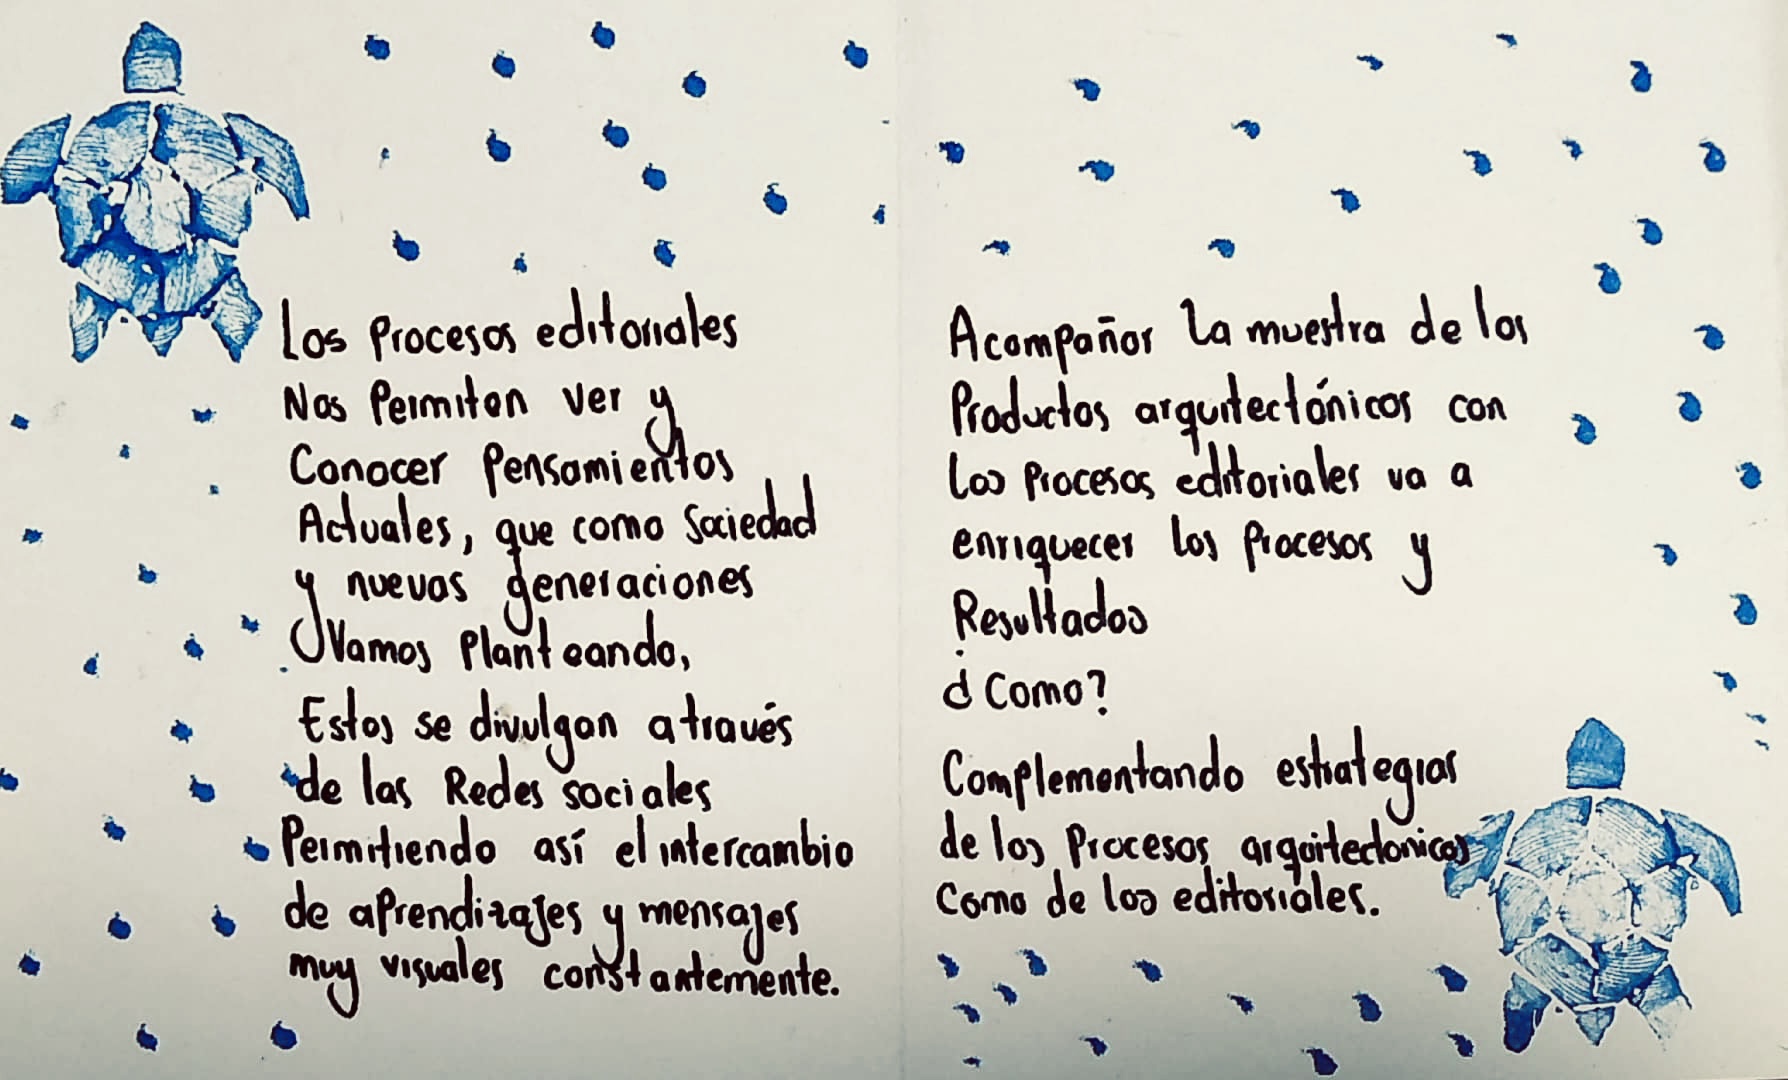 Los Procesos editoriales
Nos Permiten ver y
Conocer Pensamientos
Actuales, que como Sociedad
y nuevas generaciones
Vamos Planteando,
Estos se divulgan a través
de las Redes sociales
Permitiendo así el intercambio
de aprendizajes y mensajes
muy visuales constantemente.
Acompañar la muestra de los
Productos arquitectónicos con
los Procesos editoriales va a
enriquecer los Procesos y
Resultados
¿Como?
Complementando estrategias
de los Procesos arquitectonicos
Como de los editoriales.